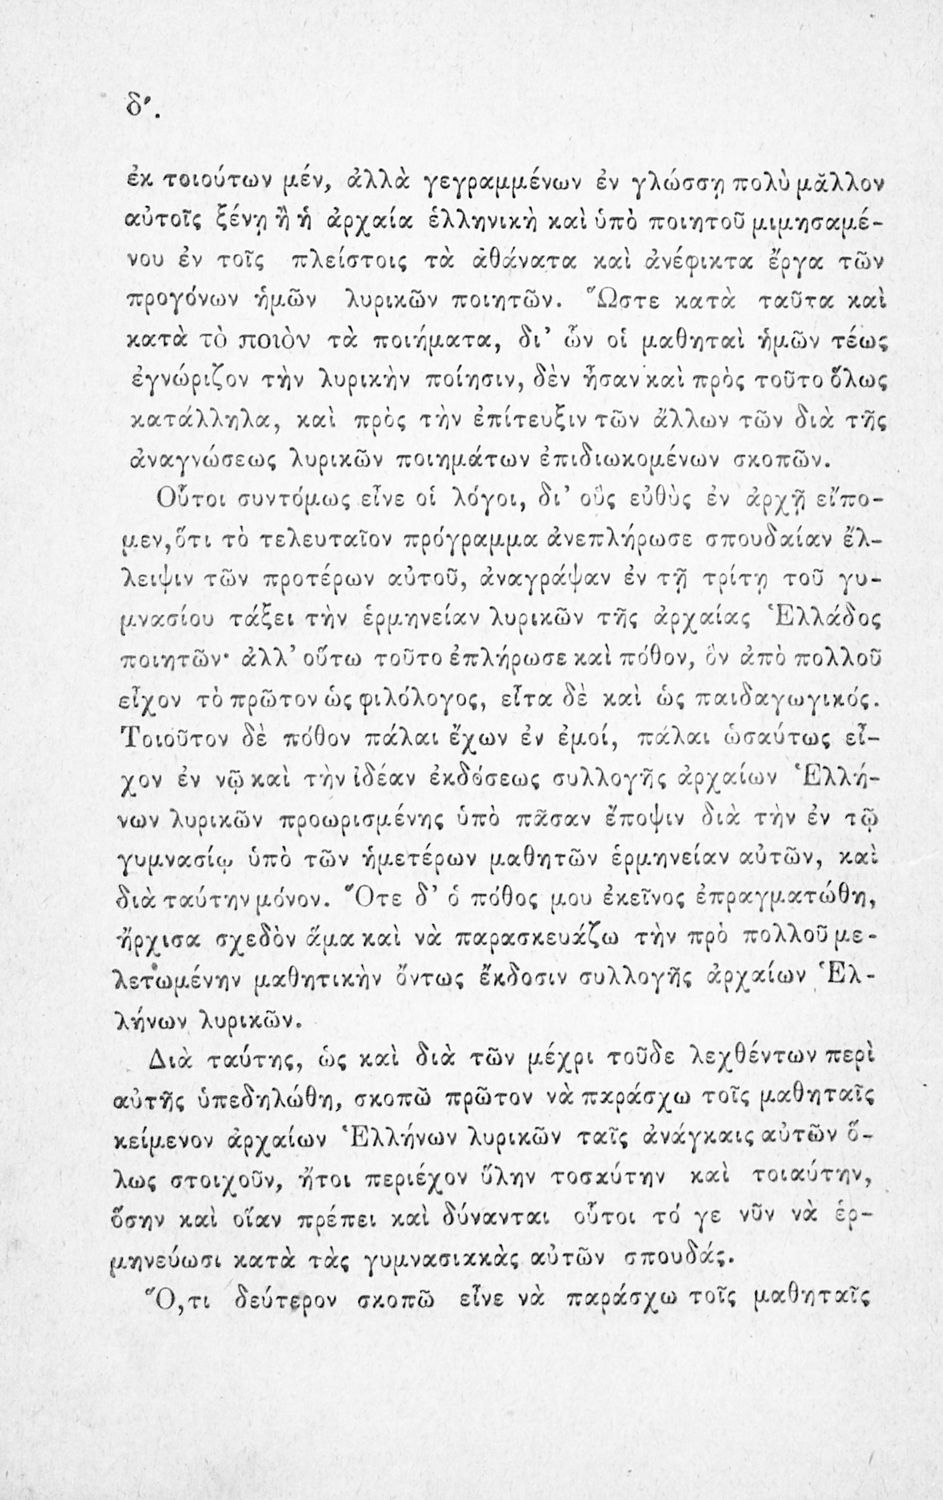 δ'.
ἐκ τοιούτων μέν, ἀλλὰ γεγραμμένων ἐν γλώσσῃ πολὺ μᾶλλον
αὐτοῖς ξένῃ ἢ ἡ ἀρχαία ἑλληνικὴ καὶ ὑπὸ ποιητοῦ μιμησαμέ-
νου ἐν τοῖς πλείστοις τὰ ἀθάνατα καὶ ἀνέφικτα ἔργα τῶν
προγόνων ἡμῶν λυρικῶν ποιητῶν. Ὥστε κατὰ ταῦτα καὶ
κατὰ τὸ ποιὸν τὰ ποιήματα, δι' ὧν οἱ μαθηταὶ ἡμῶν τέως
ἐγνώριζον τὴν λυρικὴν ποίησιν, δὲν ἦσαν καὶ πρὸς τοῦτο ὅλως
κατάλληλα, καὶ πρὸς τὴν ἐπίτευξιν τῶν ἄλλων τῶν διὰ τῆς
ἀναγνώσεως λυρικῶν ποιημάτων ἐπιδιωκομένων σκοπῶν.
Οὗτοι συντόμως εἶνε οἱ λόγοι, δι' οὓς εὐθὺς ἐν ἀρχῇ εἴπο-
μεν, ὅτι τὸ τελευταῖον πρόγραμμα ἀνεπλήρωσε σπουδαίαν ἔλ-
λειψιν τῶν προτέρων αὐτοῦ, ἀναγράψαν ἐν τῇ τρίτῃ τοῦ γυ-
μνασίου τάξει τὴν ἑρμηνείαν λυρικῶν τῆς ἀρχαίας Ἑλλάδος
ποιητῶν· ἀλλ' οὕτω τοῦτο ἐπλήρωσε καὶ πόθον, ὃν ἀπὸ πολλοῦ
εἶχον τὸ πρῶτον ὡς φιλόλογος, εἶτα δὲ καὶ ὡς παιδαγωγικός.
Τοιοῦτον δὲ πόθον πάλαι ἔχων ἐν ἐμοί, πάλαι ὡσαύτως εἶ-
χον ἐν νῷ καὶ τὴν ἰδέαν ἐκδόσεως συλλογῆς ἀρχαίων Ἑλλή-
νων λυρικῶν προωρισμένης ὑπὸ πᾶσαν ἔποψιν διὰ τὴν ἐν τῷ
γυμνασίῳ ὑπὸ τῶν ἡμετέρων μαθητῶν ἑρμηνείαν αὐτῶν, καὶ
διὰ ταύτην μόνον. Ὅτε δ' ὁ πόθος μου ἐκεῖνος ἐπραγματώθη,
ἤρχισα σχεδὸν ἅμα καὶ νὰ παρασκευάζω τὴν πρὸ πολλοῦ με-
λετωμένην μαθητικὴν ὄντως ἔκδοσιν συλλογῆς ἀρχαίων Ἑλ-
λήνων λυρικῶν.
Διὰ ταύτης, ὡς καὶ διὰ τῶν μέχρι τοῦδε λεχθέντων περὶ
αὐτῆς ὑπεδηλώθη, σκοπῶ πρῶτον νὰ παράσχω τοῖς μαθηταῖς
κείμενον ἀρχαίων Ἑλλήνων λυρικῶν ταῖς ἀνάγκαις αὐτῶν ὅ-
λως στοιχοῦν, ἤτοι περιέχον ὕλην τοσαύτην καὶ τοιαύτην,
ὅσην καὶ οἵαν πρέπει καὶ δύνανται οὗτοι τό γε νῦν νὰ ἑρ-
μηνεύωσι κατὰ τὰς γυμνασιακὰς αὐτῶν σπουδάς.
Ὅ,τι δεύτερον σκοπῶ εἶνε νὰ παράσχω τοῖς μαθηταῖς